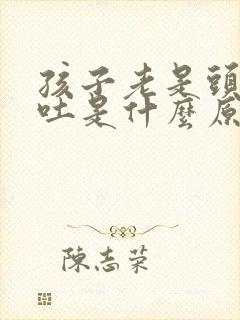 孩子老是頭
吐是什麼原
陳志荣